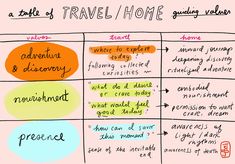 a table of TRAVEL/HOME guiding values
values
travel
home
adventure
& discovery
"where to explore
today?"
following collected
curiosities
→ inward journeys
deepening discovery
ritualized adventure
nourishment
"what do I desire
or crave today?"
"what would feel
good today?"
→ embodied
nourishment
→ permission to want
crave, dream
presence
"how can I savor
this moment?"
sense of the inevitable
end
→ awareness of
light / dark
awareness of